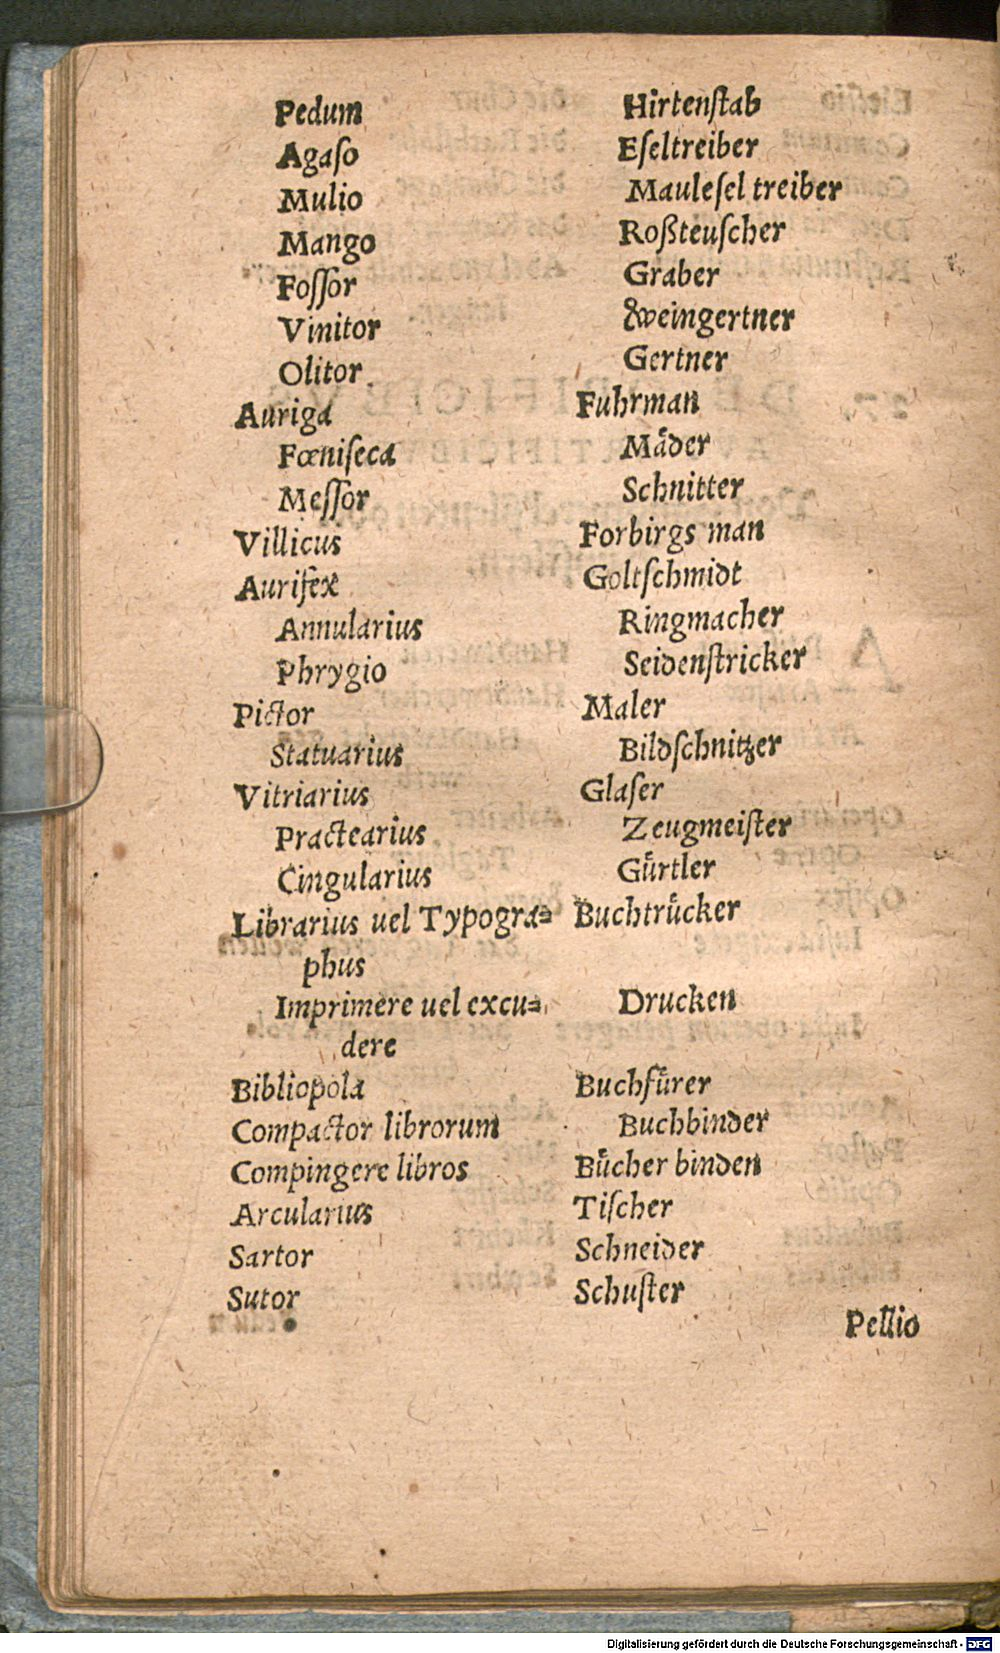 Pedum Hirtenſtab
Agaſo Eſeltreiber
Mulio Mauleſel treiber
Mango Roßteuſcher
Foſſor Graber
Vinitor Weingertner
Olitor Gertner
Auriga Fuhrman
Fœniſeca Maͤder
Meſſor Schnitter
Villicus Forbirgs man
Aurifex Goltſchmidt
Annularius Ringmacher
Phrygio Seidenſtricker
Pictor Maler
Statuarius Bildſchnitzer
Vitriarius Glaſer
Practearius Zeugmeiſter
Cingularius Guͤrtler
Librarius uel Typogra= Buchtruͤcker
phus
Imprimere uel excu= Drucken
dere
Bibliopola Buchfuͤrer
Compactor librorum Buchbinder
Compingere libros Buͤcher binden
Arcularius Tiſcher
Sartor Schneider
Sutor Schuſter
Pellio
Digitalisierung gefördert durch die Deutsche Forschungsgemeinschaft - DFG